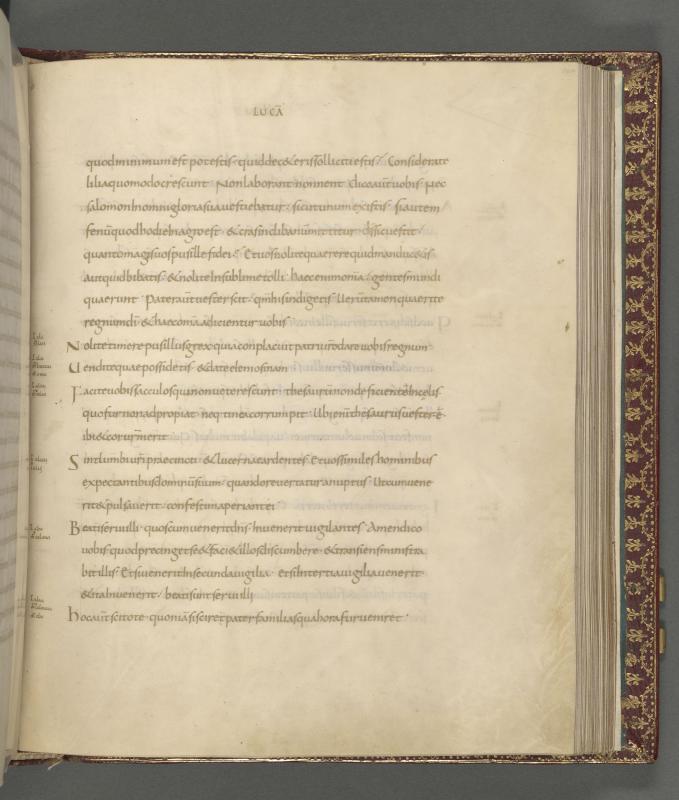 LUCĀ
quod minimum est potestis quid de c&eris solliciti estis. Considerate
lilia quomodo crescunt Non laborant non nent Dico aut uobis Nec
salomon In omni gloria sua uestiebatur sicut unum ex istis Si autem
fenū quod hodie In agro est & cras In clibanum mittitur ds sic uestit
quanto magis uos pusille fidei Et uos nolite quaerere quid manduc&is
aut quid bibatis & nolite In sublime tolli haec enim omnia gentes mundi
quaerunt Pater aut uester scit qm his indigetis Uerūtamen quaerite
regnum dī & haec omā adicientur uobis
Nolite timere pusillus grex quia conplacuit patri urō dare uobis regnum
Uendite quae possidetis & date elemosinam
Facite uobis sacculos qui non ueterescunt thesaurū non deficientē In celis
quo fur non adpropiat neq tinea corrumpit Ubi enī thesaurus uester ē
ibi & cor urm erit
Sint lumbi uri praecincti & lucernae ardentes Et uos similes hominibus
expectantibus dominū suum quando reuertatur a nuptiis Ut cum uene
rit & pulsauerit confestim aperiant ei
Beati serui illi quos cum uenerit dns Inuenerit uigilantes Amen dico
uobis quod precing& se & faci& illos discumbere & transiens ministra
bit illis Et si uenerit In secunda uigilia et si In tertia uigilia uenerit
& ita Inuenerit beati sunt serui illi
hoc aut scitote quoniā si sciret pater familias qua hora fur uenir&